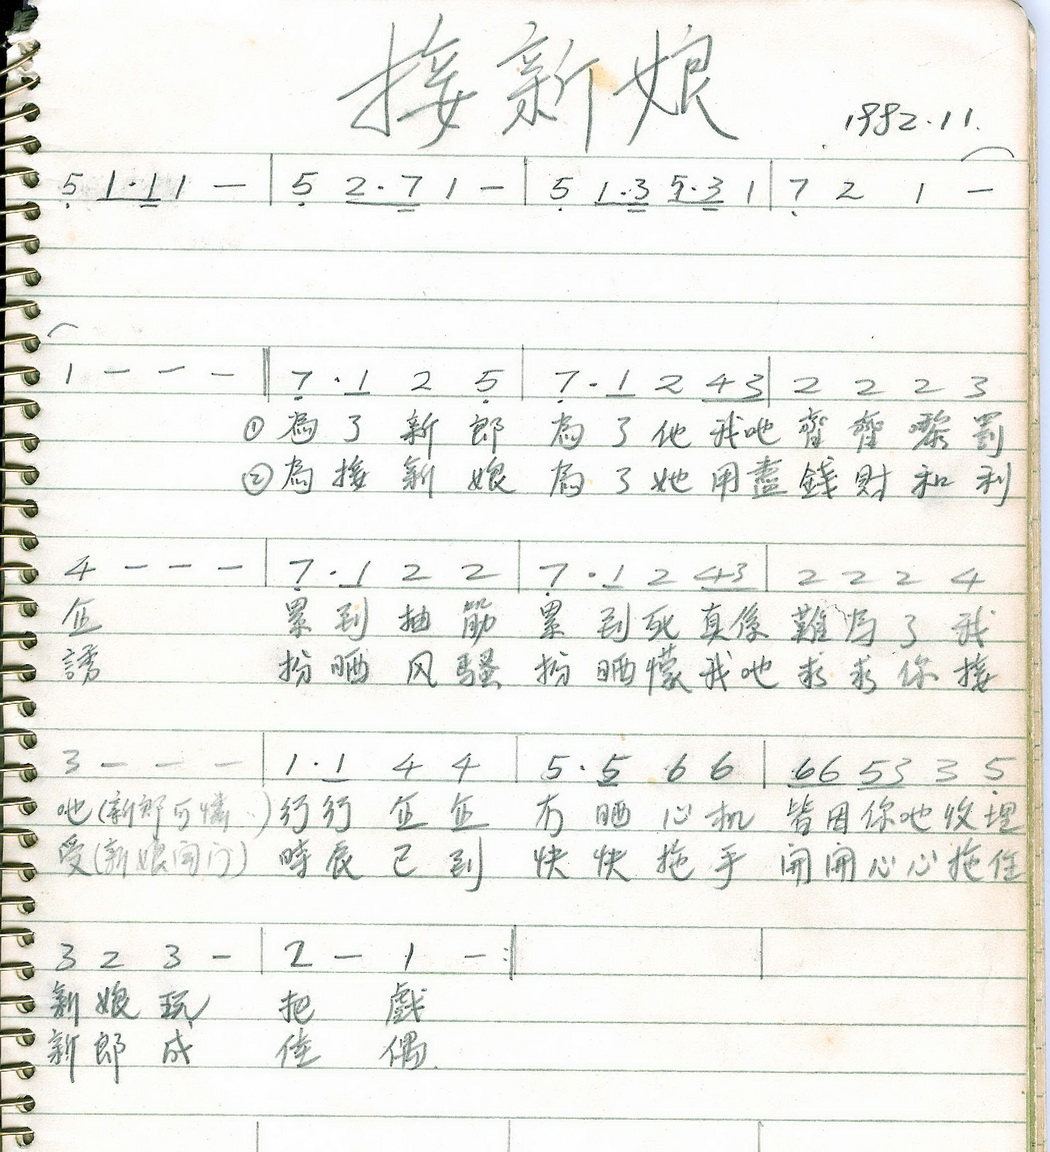 接新娘
1992.11.
5 1·1 1 — | 5 2·7 1 — | 5 1·3 5·3 1 | 7 2 1 —
1 — — — ‖ 7·1 2 5 | 7·1 2 43 | 2 2 2 3
① 為了新郎 為了他我吔齊齊嚟罰
② 為接新娘 為了她用盡錢財和利
4 — — — | 7·1 2 2 | 7·1 2 43 | 2 2 2 4
企 累到抽筋 累到死真係難為了我
誘 扮晒风騷 扮晒懞我吔求求你接
3 — — — | 1·1 4 4 | 5·5 6 6 | 66 53 3 5
吔(新郎可憐) 行行企企 冇晒心机 皆因你吔收埋
受(新娘開门) 時辰已到 快快拖手 開開心心拖住
3 2 3 — | 2 — 1 — :‖
新娘玩 把戲
新郎成 佳偶